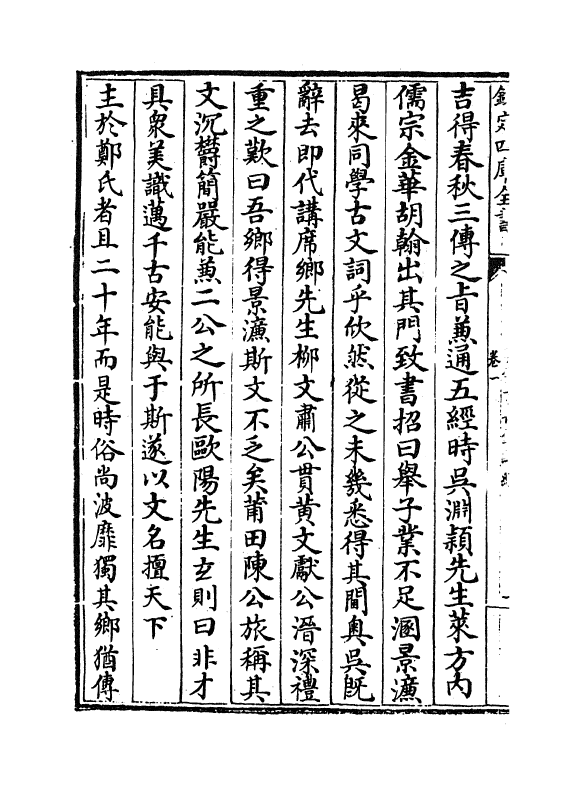 欽定四庫全書
卷一
吉得春秋三傳之旨兼通五經時吳淵穎先生萊方内
儒宗金華胡翰出其門致書招曰舉子業不足溷景濂
曷來同學古文詞乎欣然從之未幾悉得其閫奥吳既
辭去即代講席鄉先生柳文肅公貫黄文獻公溍深禮
重之歎曰吾鄉得景濂斯文不乏矣莆田陳公旅稱其
文沉欝簡嚴能兼二公之所長歐陽先生玄則曰非才
具衆美識邁千古安能與于斯遂以文名擅天下
主於鄭氏者且二十年而是時俗尚波靡獨其鄉猶傳